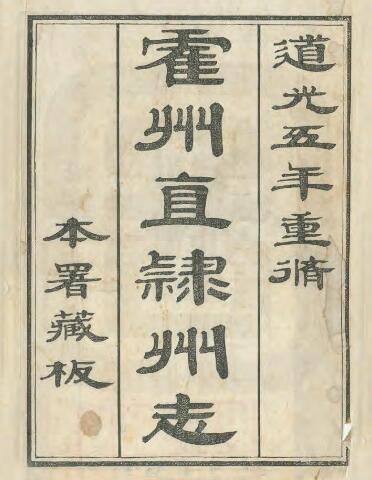 道光五年重脩
霍州直隸州志
本署藏板